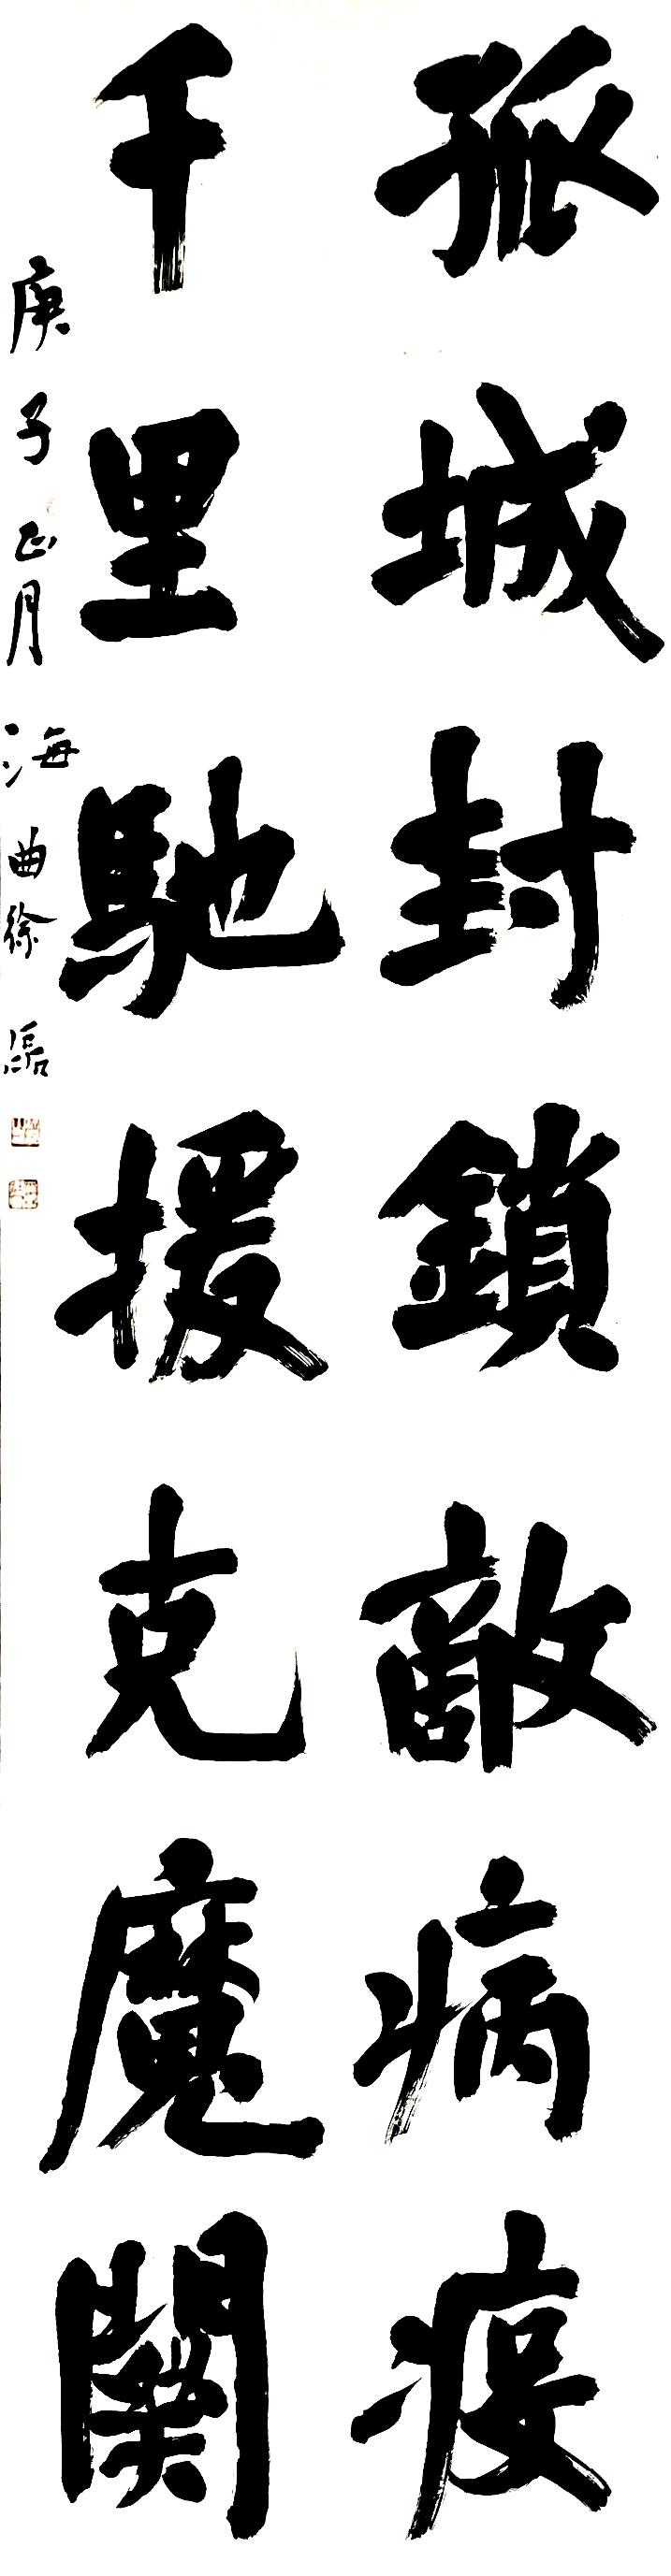 孤城封鎖敵病疫
千里馳援克魔関
庚子正月海曲徐磊